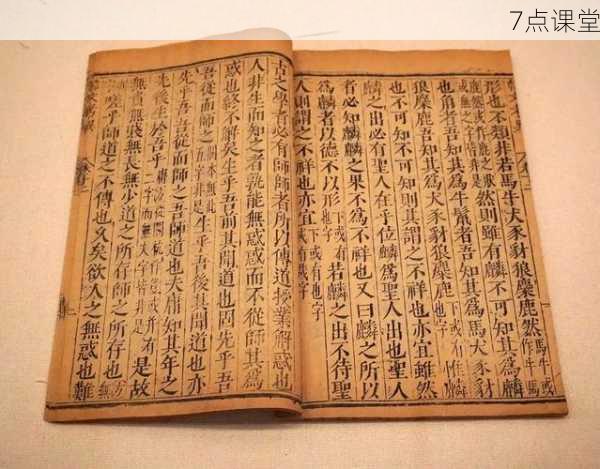 7点课堂
形也不類非若馬牛犬豕豺狼麋鹿然
然則雖有麟不可知其為麟
也角者吾知其為牛鬣者吾知其為馬犬豕豺
狼麋鹿吾知其為豺狼麋鹿
也不可知不可知則其謂之不祥也亦宜雖然
麟之出必有聖人在乎位麟為聖人出也聖人
者必知麟麟之果不為不祥也又曰麟之所以
為麟者以德不以形下或有也字若麟之出不待聖
人則謂之不祥也亦宜下或有哉字
古之學者必有師師者所以傳道授業解惑也
人非生而知之者孰能無惑惑而不從師其為
惑也終不解矣生乎吾前其聞道也固先乎吾
吾從而師之生乎吾後其聞道也亦
先乎吾吾從而師之吾師道也夫庸知其年之
先後生於吾乎是故
無貴無賤無長無少道之所存師之所存也
嗟乎師道之不傳也久矣欲人之無惑也難